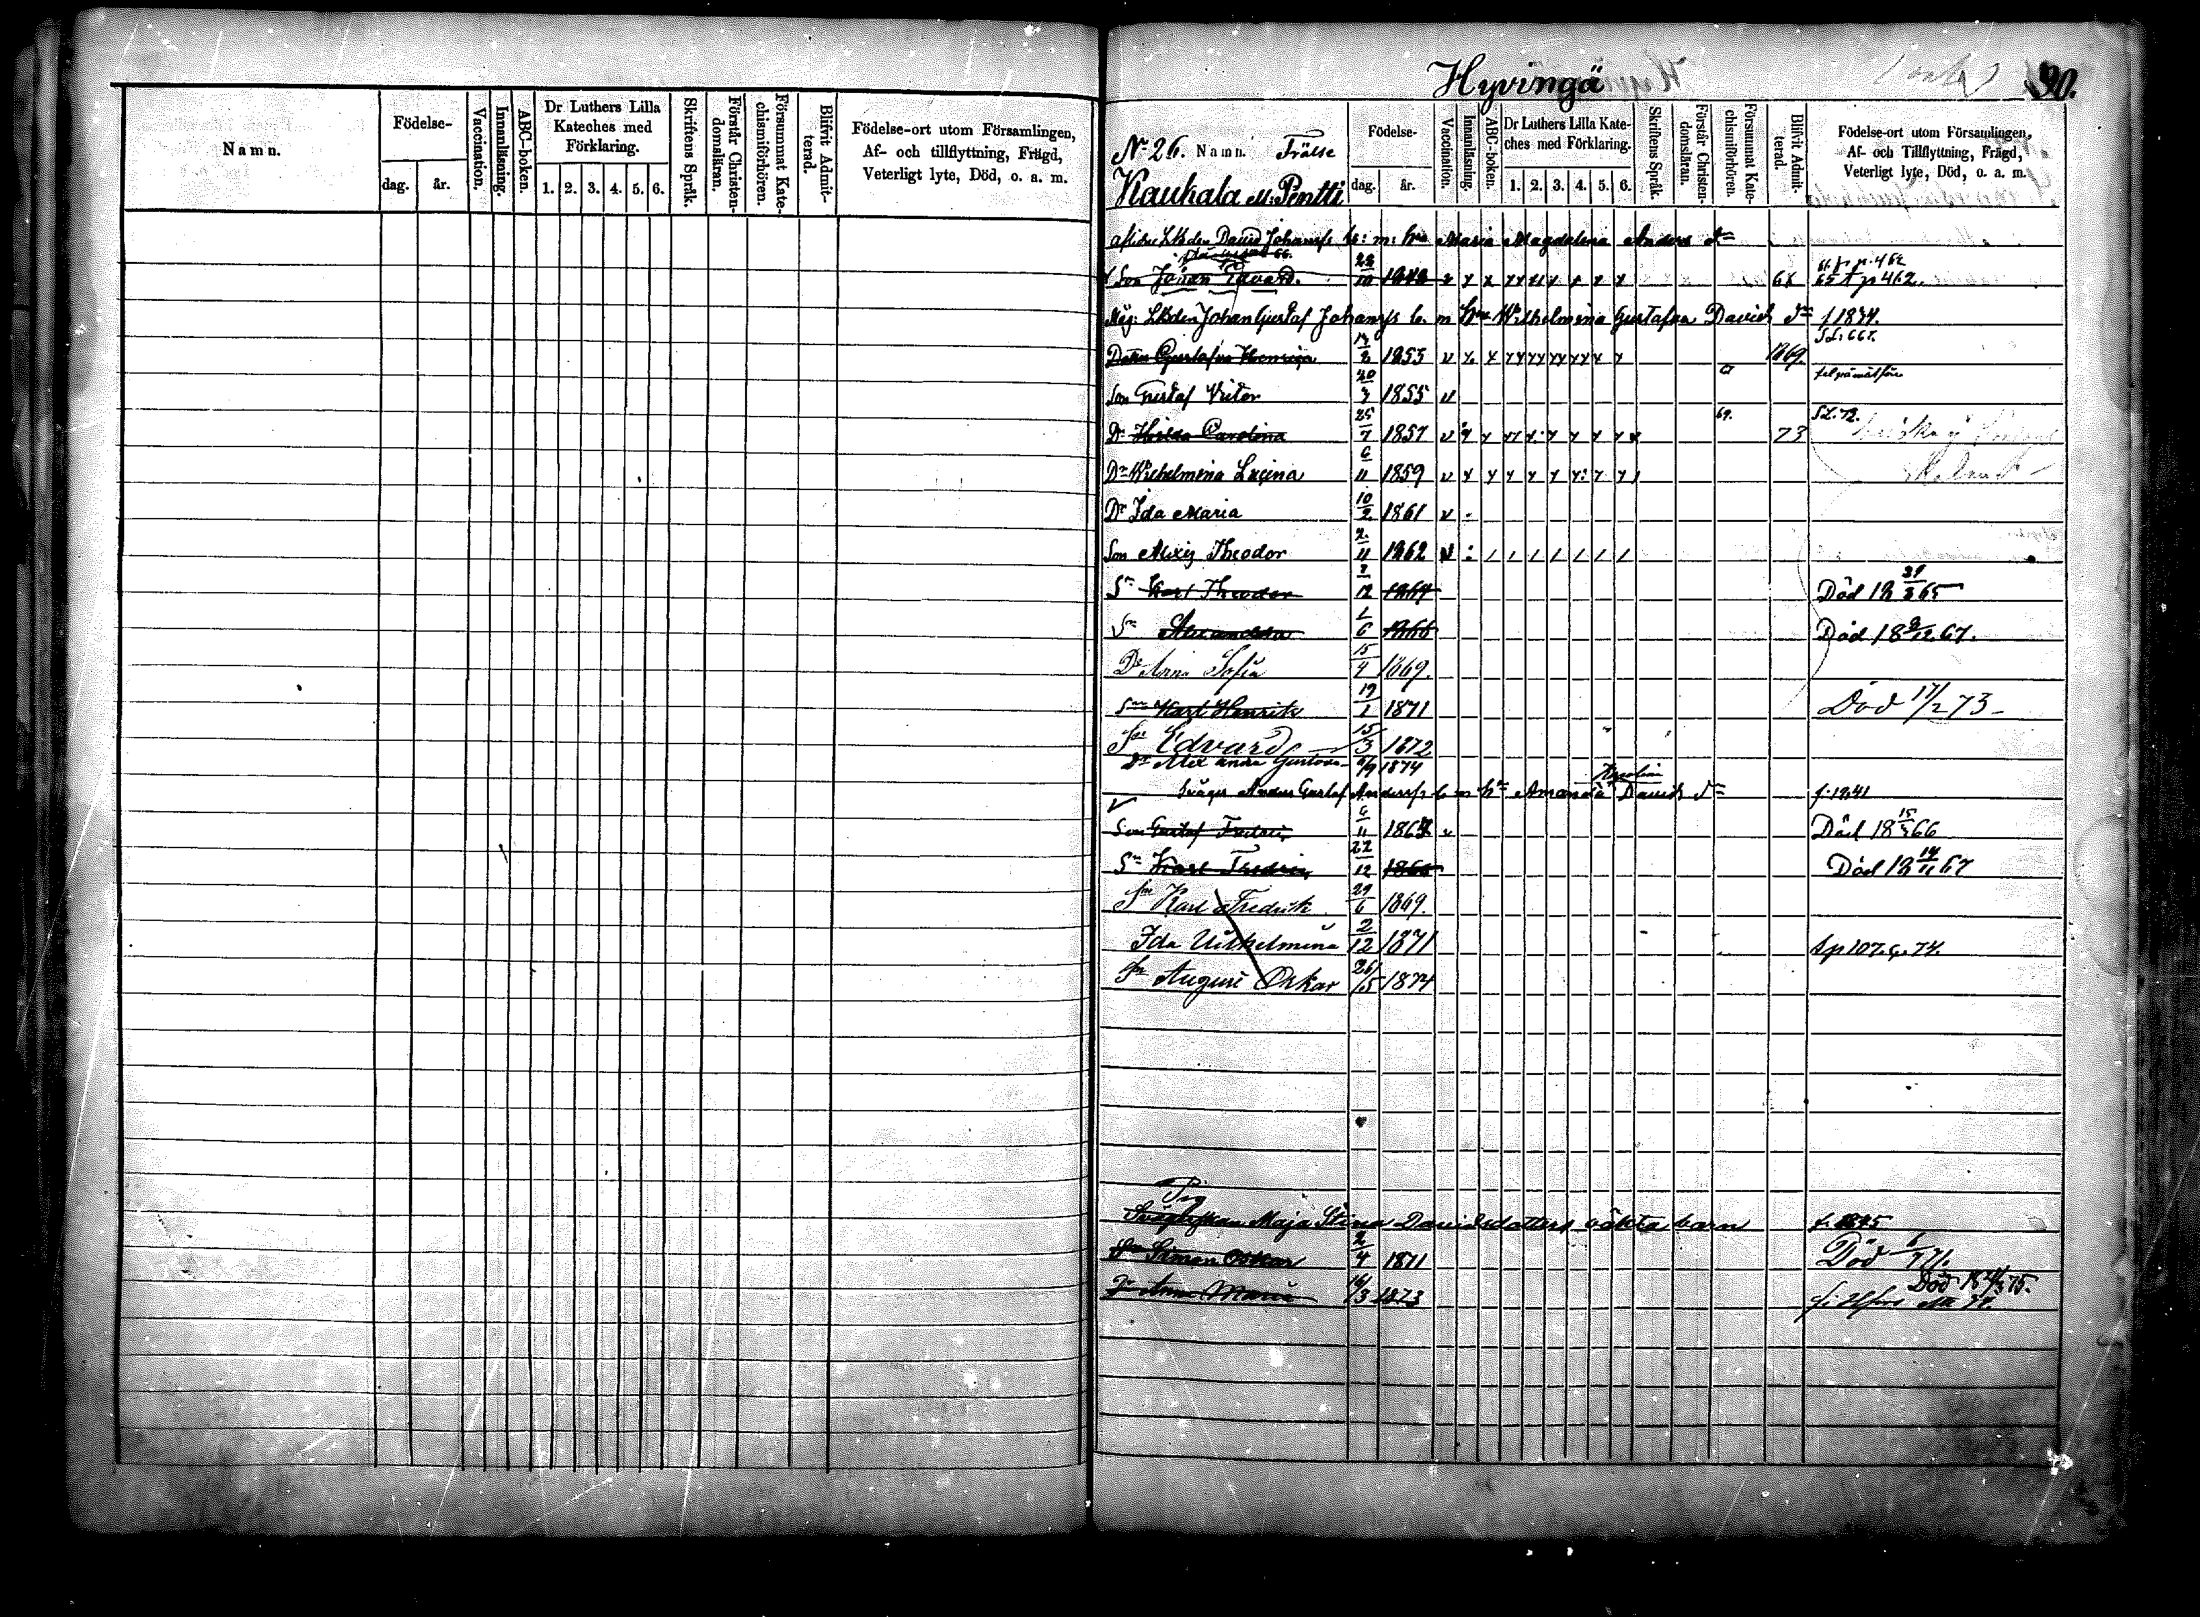 Hyvingä
90.
Namn.
Födelse-
dag.
år.
Vaccination.
Innanläsning.
ABC-boken.
Dr Luthers Lilla
Kateches med
Förklaring.
1. 2. 3. 4. 5. 6.
Skriftens Språk.
Förstår Christen-
domsläran.
Försummat Kate-
chismiförhören.
Blifvit Admit-
terad.
Födelse-ort utom Församlingen,
Af- och tillflyttning, Frägd,
Veterligt lyte, Död, o. a. m.
No 26. Namn. Frälse
Kaukala M: Pentti
Födelse-
dag.
år.
Vaccination.
Innanläsning.
ABC-boken.
Dr Luthers Lilla Kate-
ches med Förklaring.
1. 2. 3. 4. 5. 6.
Skriftens Språk.
Förstår Christen-
domsläran.
Försummat Kate-
chismiförhören.
Blifvit Admit-
terad.
Födelse-ort utom Församlingen,
Af- och Tillflyttning, Frägd,
Veterligt lyte, Död, o. a. m.
David Johanss Maria Magdalena Anders dr
Son Johan Edvard. p 462.
Johan Gustaf Johanss b. m hru Wilhelmina Gustafva Davids dr f. 1834.
Gustafva Henrica 1853 1869.
Son Gustaf Victor 20/3 1855
Dr Hilda Carolina 25/7 1857 69. 73 72.
Dr Wilhelmina Lucina 6/11 1859
Dr Ida Maria 10/2 1861
Son Alexis Theodor 2/11 1862
Sn Karl Theodor 12 1864 Död 18 65
Sn Alexander 1/6 1866 Död 18 8/12 67.
Dr Anna Sofia 15/4 1869.
Sn Karl Henrik 19/1 1871 Död 17/2 73
Sn Edvard 15/3 1872
Dr Alexandra Gustava 1874
Karolina
Svåger Anders Gustaf Anderss b m hu Amanda Davids dr f. 1841
Son Gustaf Fredric 6/11 186 Död 18 66
Sn Karl Fredric 22/12 1866 Död 18 14/11 67
Sn Karl Fredrik 29/6 1869.
Ida Wilhelmina 2/12 1871 p 107. 74.
Sn August Oskar 26/5 1874
Pig
Maja Stina Davidsdotters oäkta barn f. 1845
Sn Simon Oskar 2/4 1871 Död 71.
Dr Anna Maria 16/3 1873 Död 75.